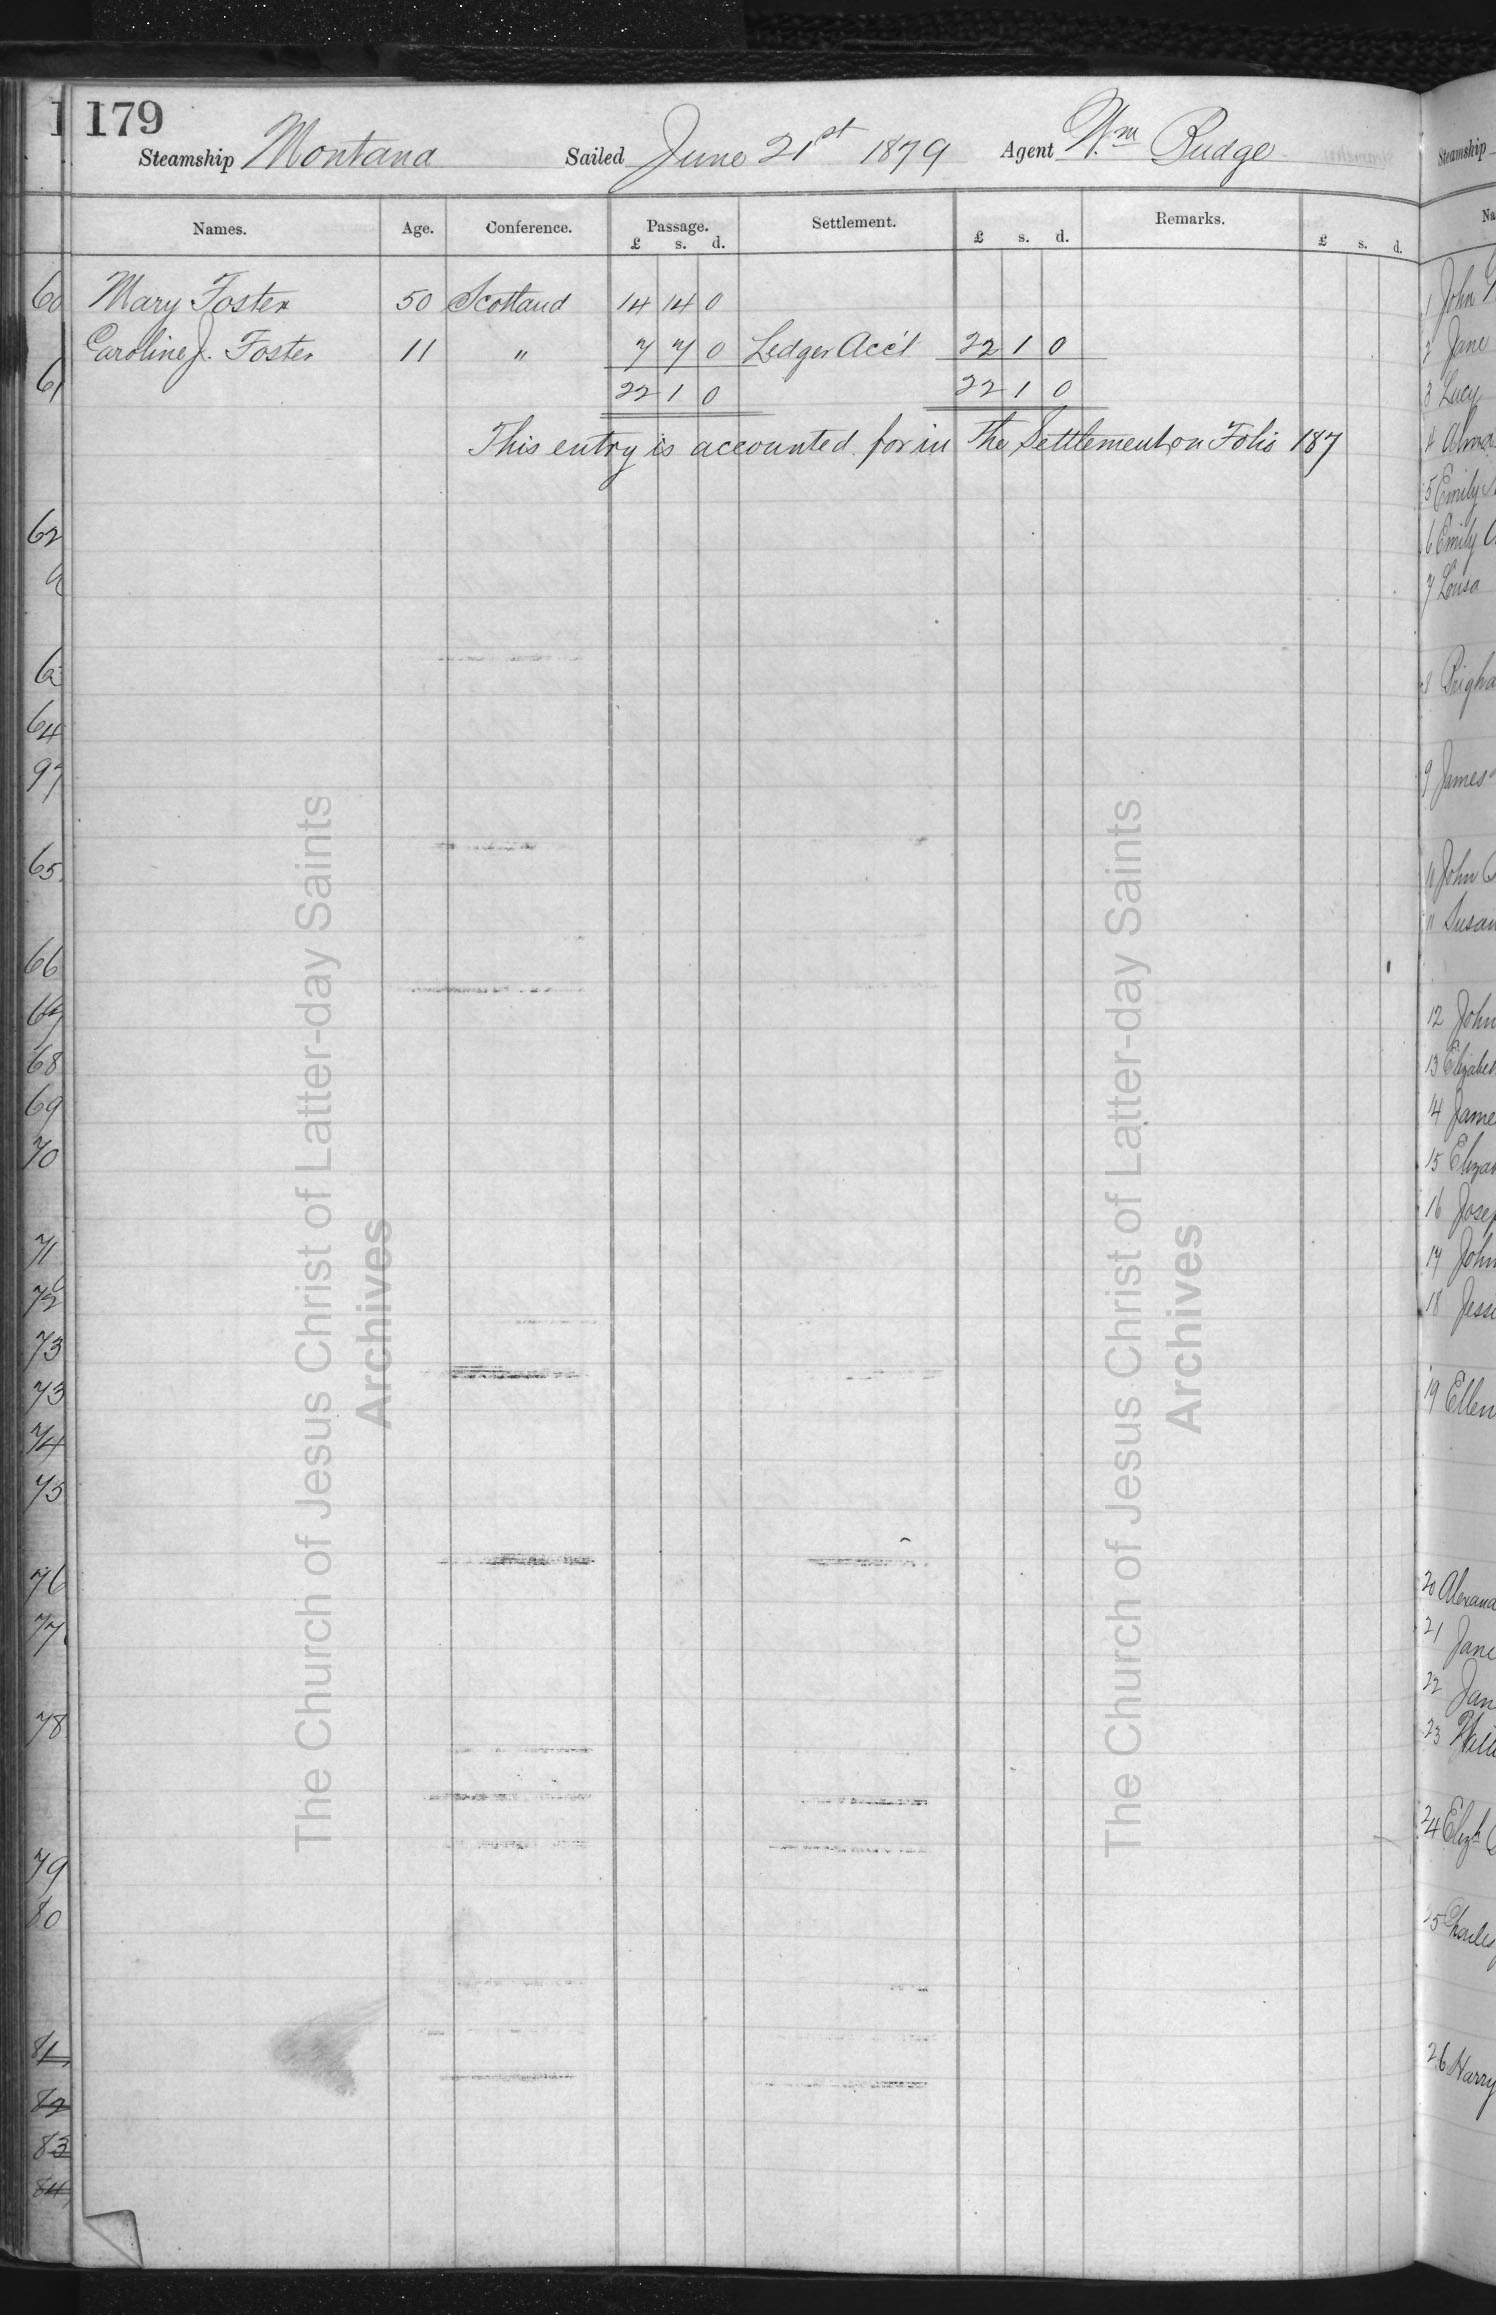 179
Steamship Montana Sailed June 21st 1879 Agent Wm Budge
Names. Age. Conference. Passage. Settlement. Remarks.
£ s. d. £ s. d. £ s. d.
Mary Foster 50 Scotland 14 14 0
Caroline J. Foster 11 " 7 7 0 Ledger Acc't 22 1 0
22 1 0 22 1 0
This entry is accounted for in the Settlement on Folio 187
60
61
62
64
97
65
66
67
68
69
70
71
72
73
73
74
75
76
77
78
79
80
81
82
83
84
Steamship
1 John
2 Jane
3 Lucy
4 Alma
5 Emily
6 Emily
7 Louisa
8 Brigha
9 James
10 John
11 Susan
12 John
13 Elizabet
14 Jame
15 Elizab
16 Josep
17 John
18 Jessi
19 Ellen
20 Alexand
21 Jane
22 Jan
23 Willi
24 Elizh
25 Charles
26 Harry
The Church of Jesus Christ of Latter-day Saints
Archives
The Church of Jesus Christ of Latter-day Saints
Archives